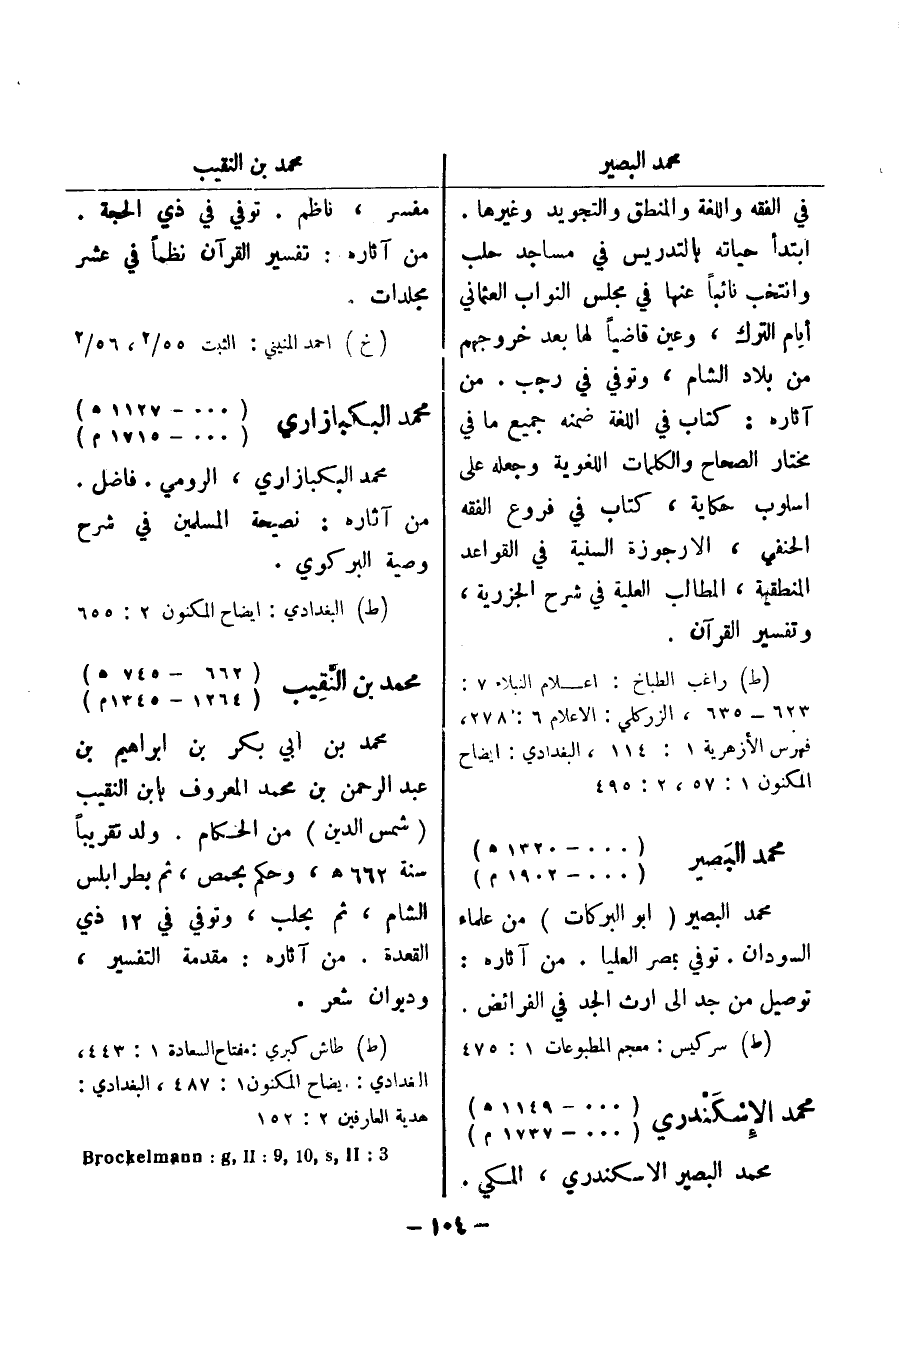 محمد البصير
في الفقه واللغة والمنطق والتجويد وغيرها .
ابتدأ حياته بالتدريس في مساجد حلب
وانتخب نائباً عنها في مجلس النواب العثماني
أيام الترك ، وعين قاضياً لها بعد خروجهم
من بلاد الشام ، وتوفي في رجب . من
آثاره : كتاب في اللغة ضمنه جميع ما في
مختار الصحاح والكلمات اللغوية وجعله على
اسلوب حكاية ، كتاب في فروع الفقه
الحنفي ، الارجوزة السنية في القواعد
المنطقية ، المطالب العلية في شرح الجزرية ،
وتفسير القرآن .
(ط) راغب الطباخ : اعـلام النبلاء ٧ :
٦٢٣ – ٦٣٥ ، الزركلي : الاعلام ٦ : ٢٧٨ ،
فهرس الأزهرية ١ : ١١٤ ، البغدادي : ايضاح
المكنون ١ : ٥٧ ، ٢ : ٤٩٥
محمد البَصير ( ٠٠٠ – ١٣٢٠ ه )
( ٠٠٠ – ١٩٠٢ م )
محمد البصير ( ابو البركات ) من علماء
السودان . توفي بمصر العليا . من آثاره :
توصيل من جد الى ارث الجد في الفرائض .
(ط) سركيس : معجم المطبوعات ١ : ٤٧٥
محمد الإِسْكَنْدري ( ٠٠٠ – ١١٤٩ ه )
( ٠٠٠ – ١٧٣٧ م )
محمد البصير الاسكندري ، المكي .
محمد بن النقيب
مفسر ، ناظم . توفي في ذي الحجة .
من آثاره : تفسير القرآن نظماً في عشر
مجلدات .
(خ) احمد المنيني : الثبت ٢/٥٥ ، ٢/٥٦
محمد البكبازاري ( ٠٠٠ – ١١٢٧ ه )
( ٠٠٠ – ١٧١٥ م )
محمد البكبازاري ، الرومي . فاضل .
من آثاره : نصيحة المسلمين في شرح
وصية البركوي .
(ط) البغدادي : ايضاح المكنون ٢ : ٦٥٥
محمد بن النَّقِيب ( ٦٦٢ – ٧٤٥ ه )
( ١٢٦٤ – ١٣٤٥م )
محمد بن أبي بكر بن ابراهيم بن
عبد الرحمن بن محمد المعروف بابن النقيب
( شمس الدين ) من الحكام . ولد تقريباً
سنة ٦٦٢ ه ، وحكم بحمص ، ثم بطرابلس
الشام ، ثم بحلب ، وتوفي في ١٢ ذي
القعدة . من آثاره : مقدمة التفسير ،
وديوان شعر .
(ط) طاش كبري : مفتاح السعادة ١ : ٤٤٣ ،
البغدادي : ايضاح المكنون ١ : ٤٨٧ ، البغدادي :
هدية العارفين ٢ : ١٥٢
Brockelmann : g, II : 9, 10, s, II : 3
– ١٠٤ –